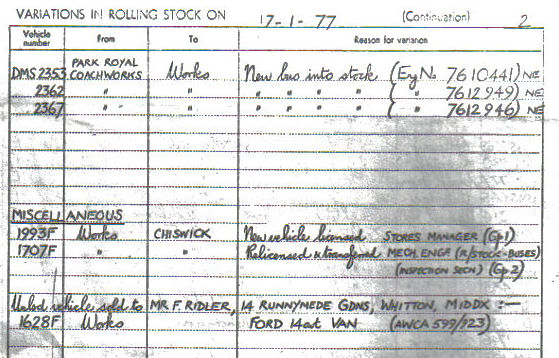 VARIATIONS IN ROLLING STOCK ON 17-1-77 (Continuation) 2
Vehicle number From To Reason for variation
DMS 2353 PARK ROYAL COACHWORKS Works New bus into stock (Eng No. 7610441) NE
2362 " " " " " " ( " 7612949) NE
2367 " " " " " " ( " 7612946) NE
MISCELLANEOUS
1993F Works CHISWICK New vehicle licensed STORES MANAGER (Gp 1)
1707F " " Relicensed & transferred MECH. ENGR (R/STOCK-BUSES)
(INSPECTION SECN) (Gp 2)
Unlsd vehicle sold to MR F. RIDLER, 14 RUNNYMEDE GDNS, WHITTON, MIDDX :—
1628F Works FORD 14cwt VAN (AWCA 599/923)